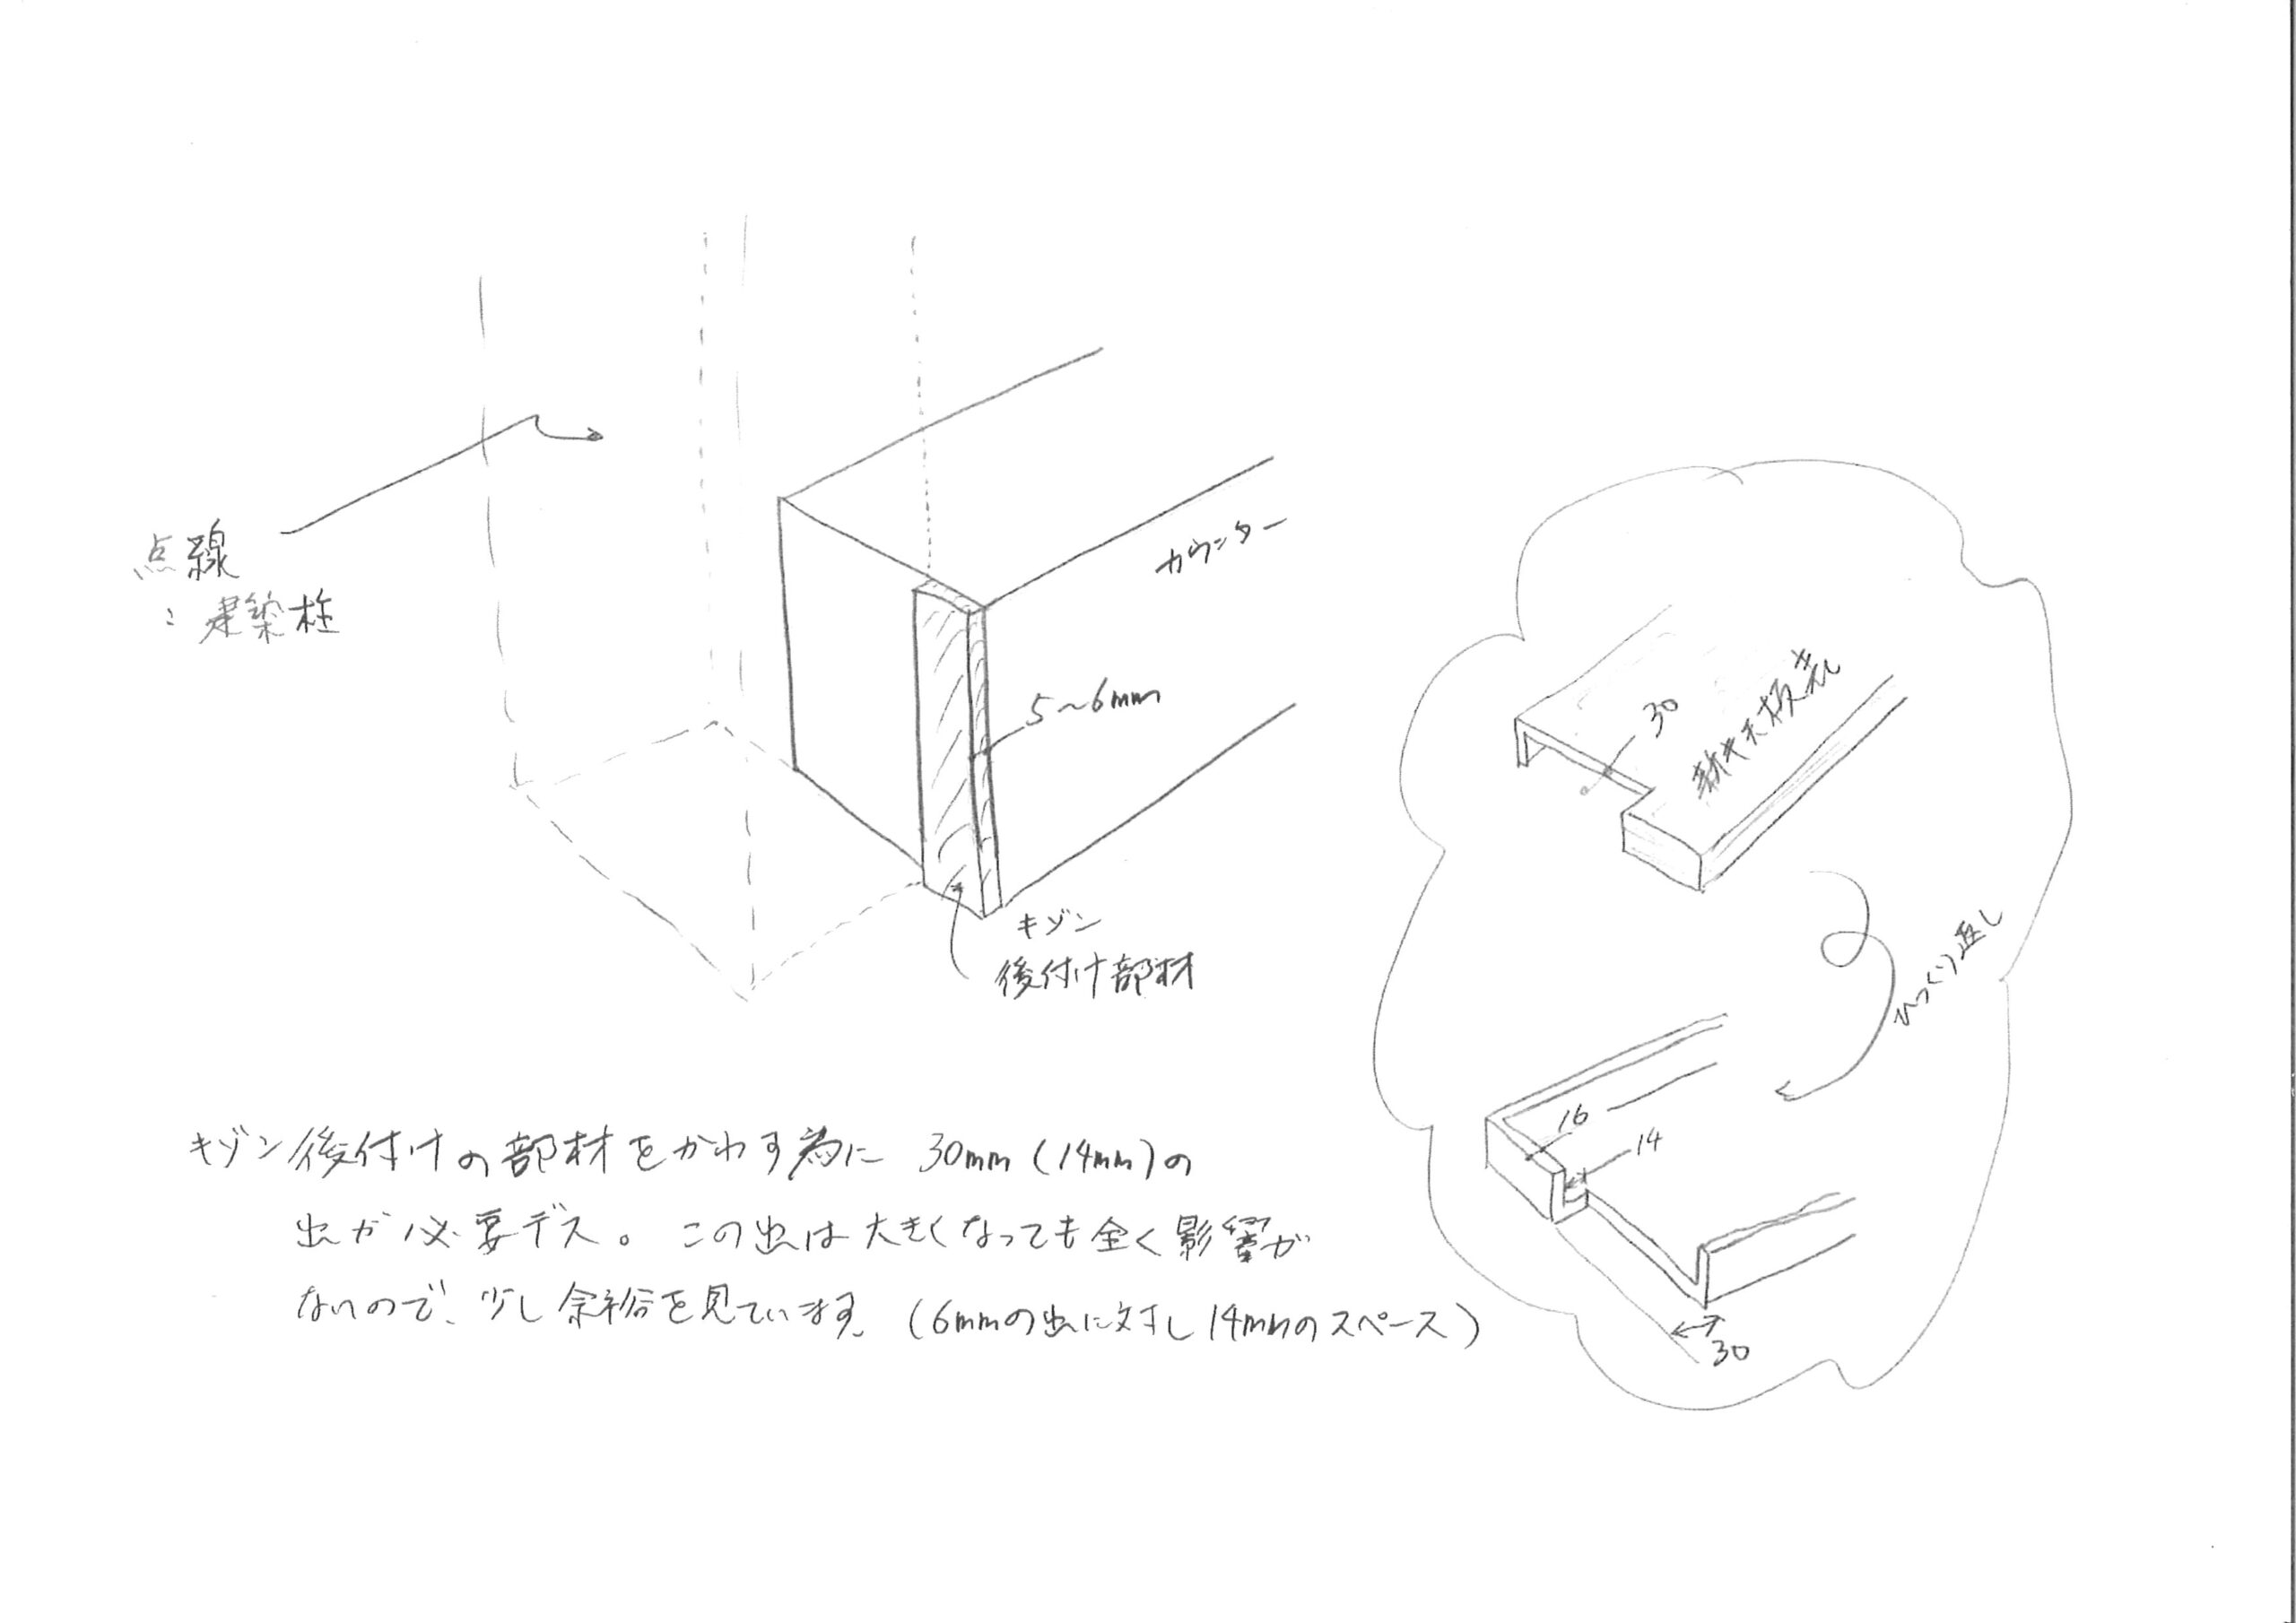 点線
：建築柱
カウンター
5〜6mm
キゾン
後付け部材
30
16
14
ひっくり返し
30
キゾン後付けの部材をかわす為に 30mm (14mm)の
出が必要デス。この出は大きくなっても全く影響が
ないので、少し余裕を見ています。(6mmの出に対し14mmのスペース)